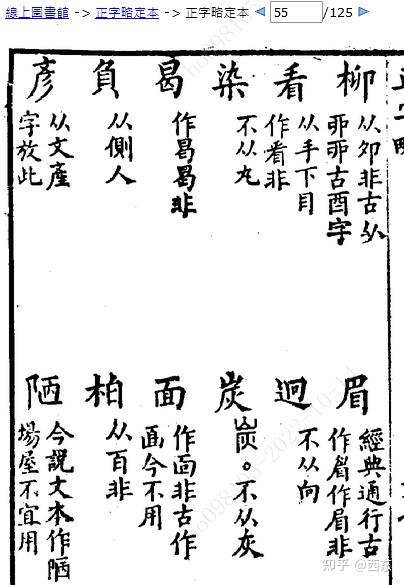 線上圖書館 -> 正字略定本 -> 正字略定本 55 /125
柳
从夘非古从
丣丣古酉字
眉
經典通行古
作睂作眉非
看
从手下目
作㸔非
迥
不从向
染
不从丸
炭
不从灰
曷
作
曷非
面
作靣非古作
今不用
負
从側人
柏
从百非
彥
从文產
字放此
陋
今說文本作陋
場屋不宜用
知乎 @西东